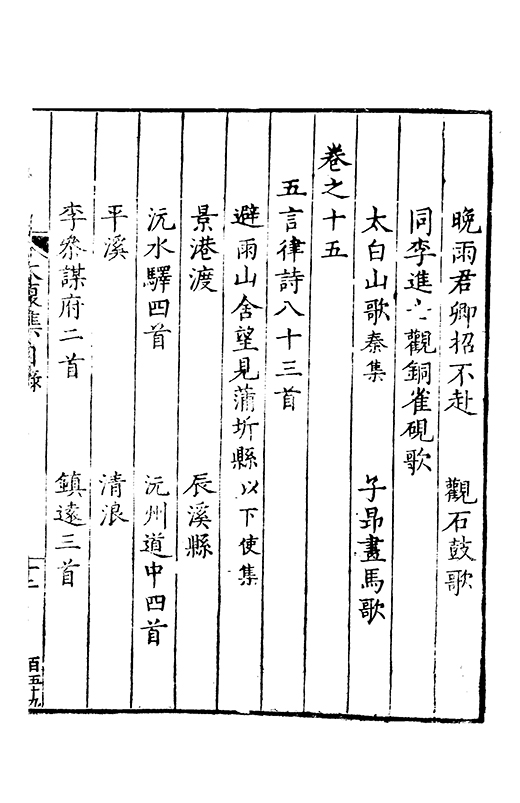 晚雨君卿招不赴　觀石鼓歌
同李進士觀銅雀硯歌
太白山歌秦集　子昂畫馬歌
卷之十五
五言律詩八十三首
避雨山舍望見蒲圻縣以下使集
景港渡　辰溪縣
沅水驛四首　沅州道中四首
平溪　清浪
李參謀府二首　鎮遠三首
大復集目錄
百五十九